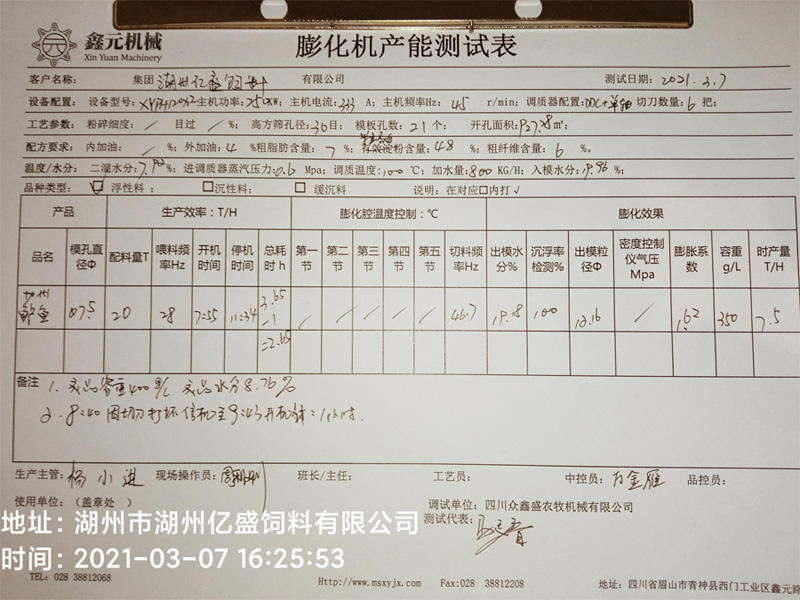 鑫元机械
Xin Yuan Machinery
膨化机产能测试表
客户名称： 集团 湖州亿盛饲料 有限公司 测试日期：2021.3.7
设备配置： 设备型号： 主机功率：250KW; 主机电流：333 A; 主机频率Hz： 45 r/min; 调质器配置：DDC+单轴 切刀数量：6 把;
工艺参数： 粉碎细度： / 目过 / %; 高方筛孔径：30目; 模板孔数：21个; 开孔面积：927.28㎡;
配方要求： 内加油： / %; 外加油：4 %粗脂肪含量：7 %; 淀粉含量：48 %; 粗纤维含量：6 %。
温度/水分： 二混水分： %; 进调质器蒸汽压力：0.6 Mpa; 调质温度：100 ℃; 加水量：800 KG/H; 入模水分： %;
品种类型： ☑ 浮性料； □沉性料； □ 缓沉料 说明：在对应□内打√
产品 生产效率：T/H 膨化腔温度控制：℃ 膨化效果
品名 模孔直径Φ 配料量T 喂料频率Hz 开机时间 停机时间 总耗时 h 第一节 第二节 第三节 第四节 第五节 切料频率Hz 出模水分% 沉浮率检测% 出模粒径Φ 密度控制仪气压Mpa 膨胀系数 容重g/L 时产量T/H
加州鲈鱼 Φ7.5 20 28 7:55 11:34 3.65-1=2.65 / / / / / 46.7 19.18 100 12.16 / 1.62 350 7.5
备注 1. 成品容重400g/L 成品水分8.76%
2. 8:40因切刀打坏停机至9:43开机 =1小时.
生产主管：杨小进 现场操作员： 班长/主任： 工艺员： 中控员：万金雁 品控员：
使用单位：（盖章处 ） 调试单位：四川众鑫盛农牧机械有限公司
测试代表：
地址：湖州市湖州亿盛饲料有限公司
时间：2021-03-07 16:25:53
TEL：028 38812068 Http://www.msxyjx.com Fax:028 38812208 地址：四川省眉山市青神县西门工业区鑫元路